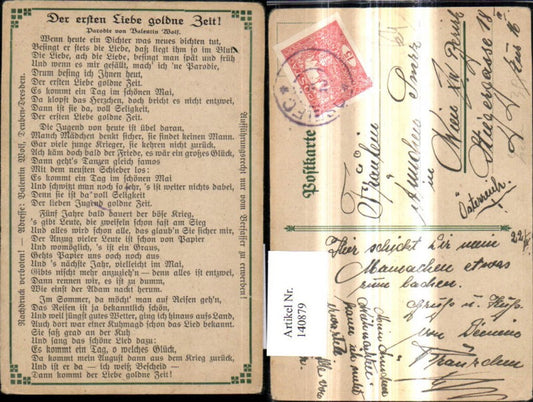 Der ersten Liebe goldne Zeit!
Parodie von Valentin Wolf.
Wenn heute ein Dichter was neues dichten tut,
Besingt er stets die Liebe, daß liegt ihm so im Blut
Die Liebe, ach die Liebe, besingt man spät und früh
Und wenn es mir gefällt, mach' ich 'ne Parodie,
Drum besing ich Ihnen heut,
Der ersten Liebe goldne Zeit.
Es kommt ein Tag im schönen Mai,
Da klopft das Herzchen, doch bricht es nicht entzwei,
Dann ist sie da, voll Seligkeit,
Der ersten Liebe goldne Zeit.
Die Jugend von heute ist übel daran,
Manch Mädchen denkt sicher, sie findet keinen Mann.
Gar viele junge Krieger, sie kehren nicht zurück,
Ach käm doch bald der Friede, es wär ein großes Glück,
Dann geht's Tanzen gleich famos
Mit dem neusten Schieber los:
Es kommt ein Tag im schönen Mai
Und schwitzt man noch so sehr, 's ist weiter nichts dabei,
Denn sie ist da's voll Seligkeit
Der lieben Jugend goldne Zeit.
Fünf Jahre bald dauert der böse Krieg,
's gibt Leute, die zweifeln schon fast am Sieg
Und alles wird schon alle, das glaub'n Sie sicher mir,
Der Anzug vieler Leute ist schon von Papier
Und womöglich, 's ist ein Graun,
Gehts Papier uns ooch noch aus
Und 's nächste Jahr, vielleicht im Mai,
Gibts nischt mehr anzuzieh'n — denn alles ist entzwei,
Dann rennten wir, es ist zu dumm,
Wie einst der Adam nackt herum.
Im Sommer, da möcht' man auf Reisen geh'n,
Das Reisen ist ja bekanntlich schön,
Und weil jüngst gutes Wetter, ging ich hinaus aufs Land,
Auch dort war einer Kuhmagd schon das Lied bekannt.
Sie saß grad an der Kuh
Und sang ganz schön das Lied dazu:
Es kommt ein Tag, o welches Glück,
Da kommt mein August dann aus dem Krieg zurück,
Und ist er da — ich weiß Bescheid —
Dann kommt der Liebe goldne Zeit!
Nachdruck verboten! — Adresse: Valentin Wolf, Deuben-Dresden.
Aufführungsrecht nur vom Verfasser zu erwerben!
Postkarte
Fräulein
in
Wien
Österreich
Artikel Nr.
140879
Hier schickt Dir mein
Mamachen etwas
zum lachen.
Gruß u. Kuß
von Deinem
Fränzchen